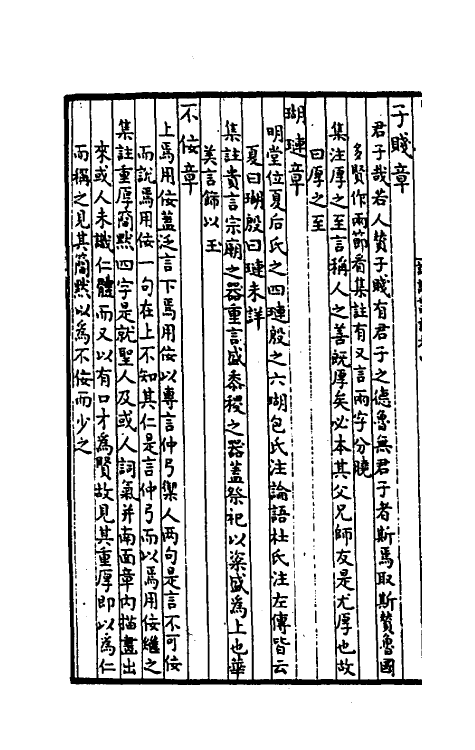 子賤章
君子哉若人贊子賤有君子之德魯無君子者斯焉取斯贊魯國
多賢作兩節看集註有又言兩字分曉
集注厚之至言稱人之善既厚矣必本其父兄師友是尤厚也故
曰厚之至
瑚璉章
明堂位夏后氏之四璉殷之六瑚包氏注論語杜氏注左傳皆云
夏曰瑚殷曰璉未詳
集註貴言宗廟之器重言盛黍稷之器蓋祭祀以粢盛為上也華
美言飾以玉
不佞章
上焉用佞蓋泛言下焉用佞以專言仲弓禦人兩句是言不可佞
而説焉用佞一句在上不知其仁是言仲弓而以焉用佞繼之
集註重厚簡默四字是就聖人及或人詞氣并南面章内描畫出
來或人未識仁體而又以有口才為賢故見其重厚即以為仁
而稱之見其簡默以為不佞而少之